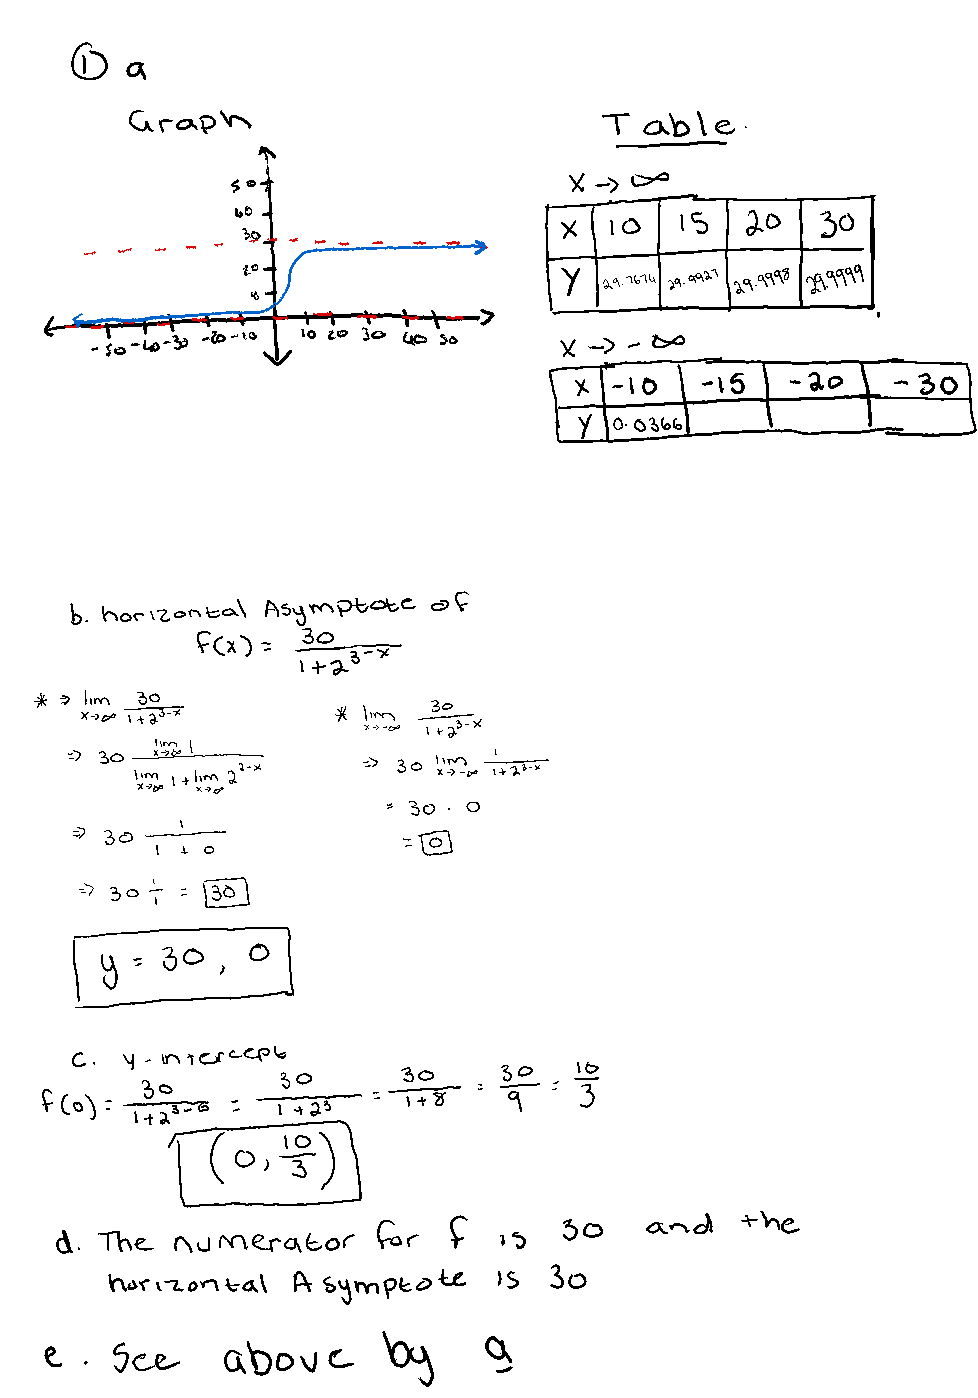 ① a
Graph
50
40
30
20
-50 -40 -30 -20 -10 10 20 30 40 50
Table.
x → ∞
X 10 15 20 30
Y 29.7674 29.9927 29.9998 29.9999
x → -∞
X -10 -15 -20 -30
Y 0.0366
b. horizontal Asymptote of
f(x) = 30 / 1+2^{3-x}
* ⇒ lim x→∞ 30 / 1+2^{3-x}
⇒ 30 lim x→∞ 1 / lim x→∞ 1 + lim x→∞ 2^{3-x}
⇒ 30 1 / 1 + 0
⇒ 30 1/1 = 30
* lim x→-∞ 30 / 1+2^{3-x}
⇒ 30 lim x→-∞ 1 / 1+2^{3-x}
= 30 · 0
= 0
y = 30, 0
c. y-intercept
f(0) = 30 / 1+2^{3-0} = 30 / 1+2^3 = 30 / 1+8 = 30/9 = 10/3
(0, 10/3)
d. The numerator for f is 30 and the
horizontal Asymptote is 30
e. See above by a